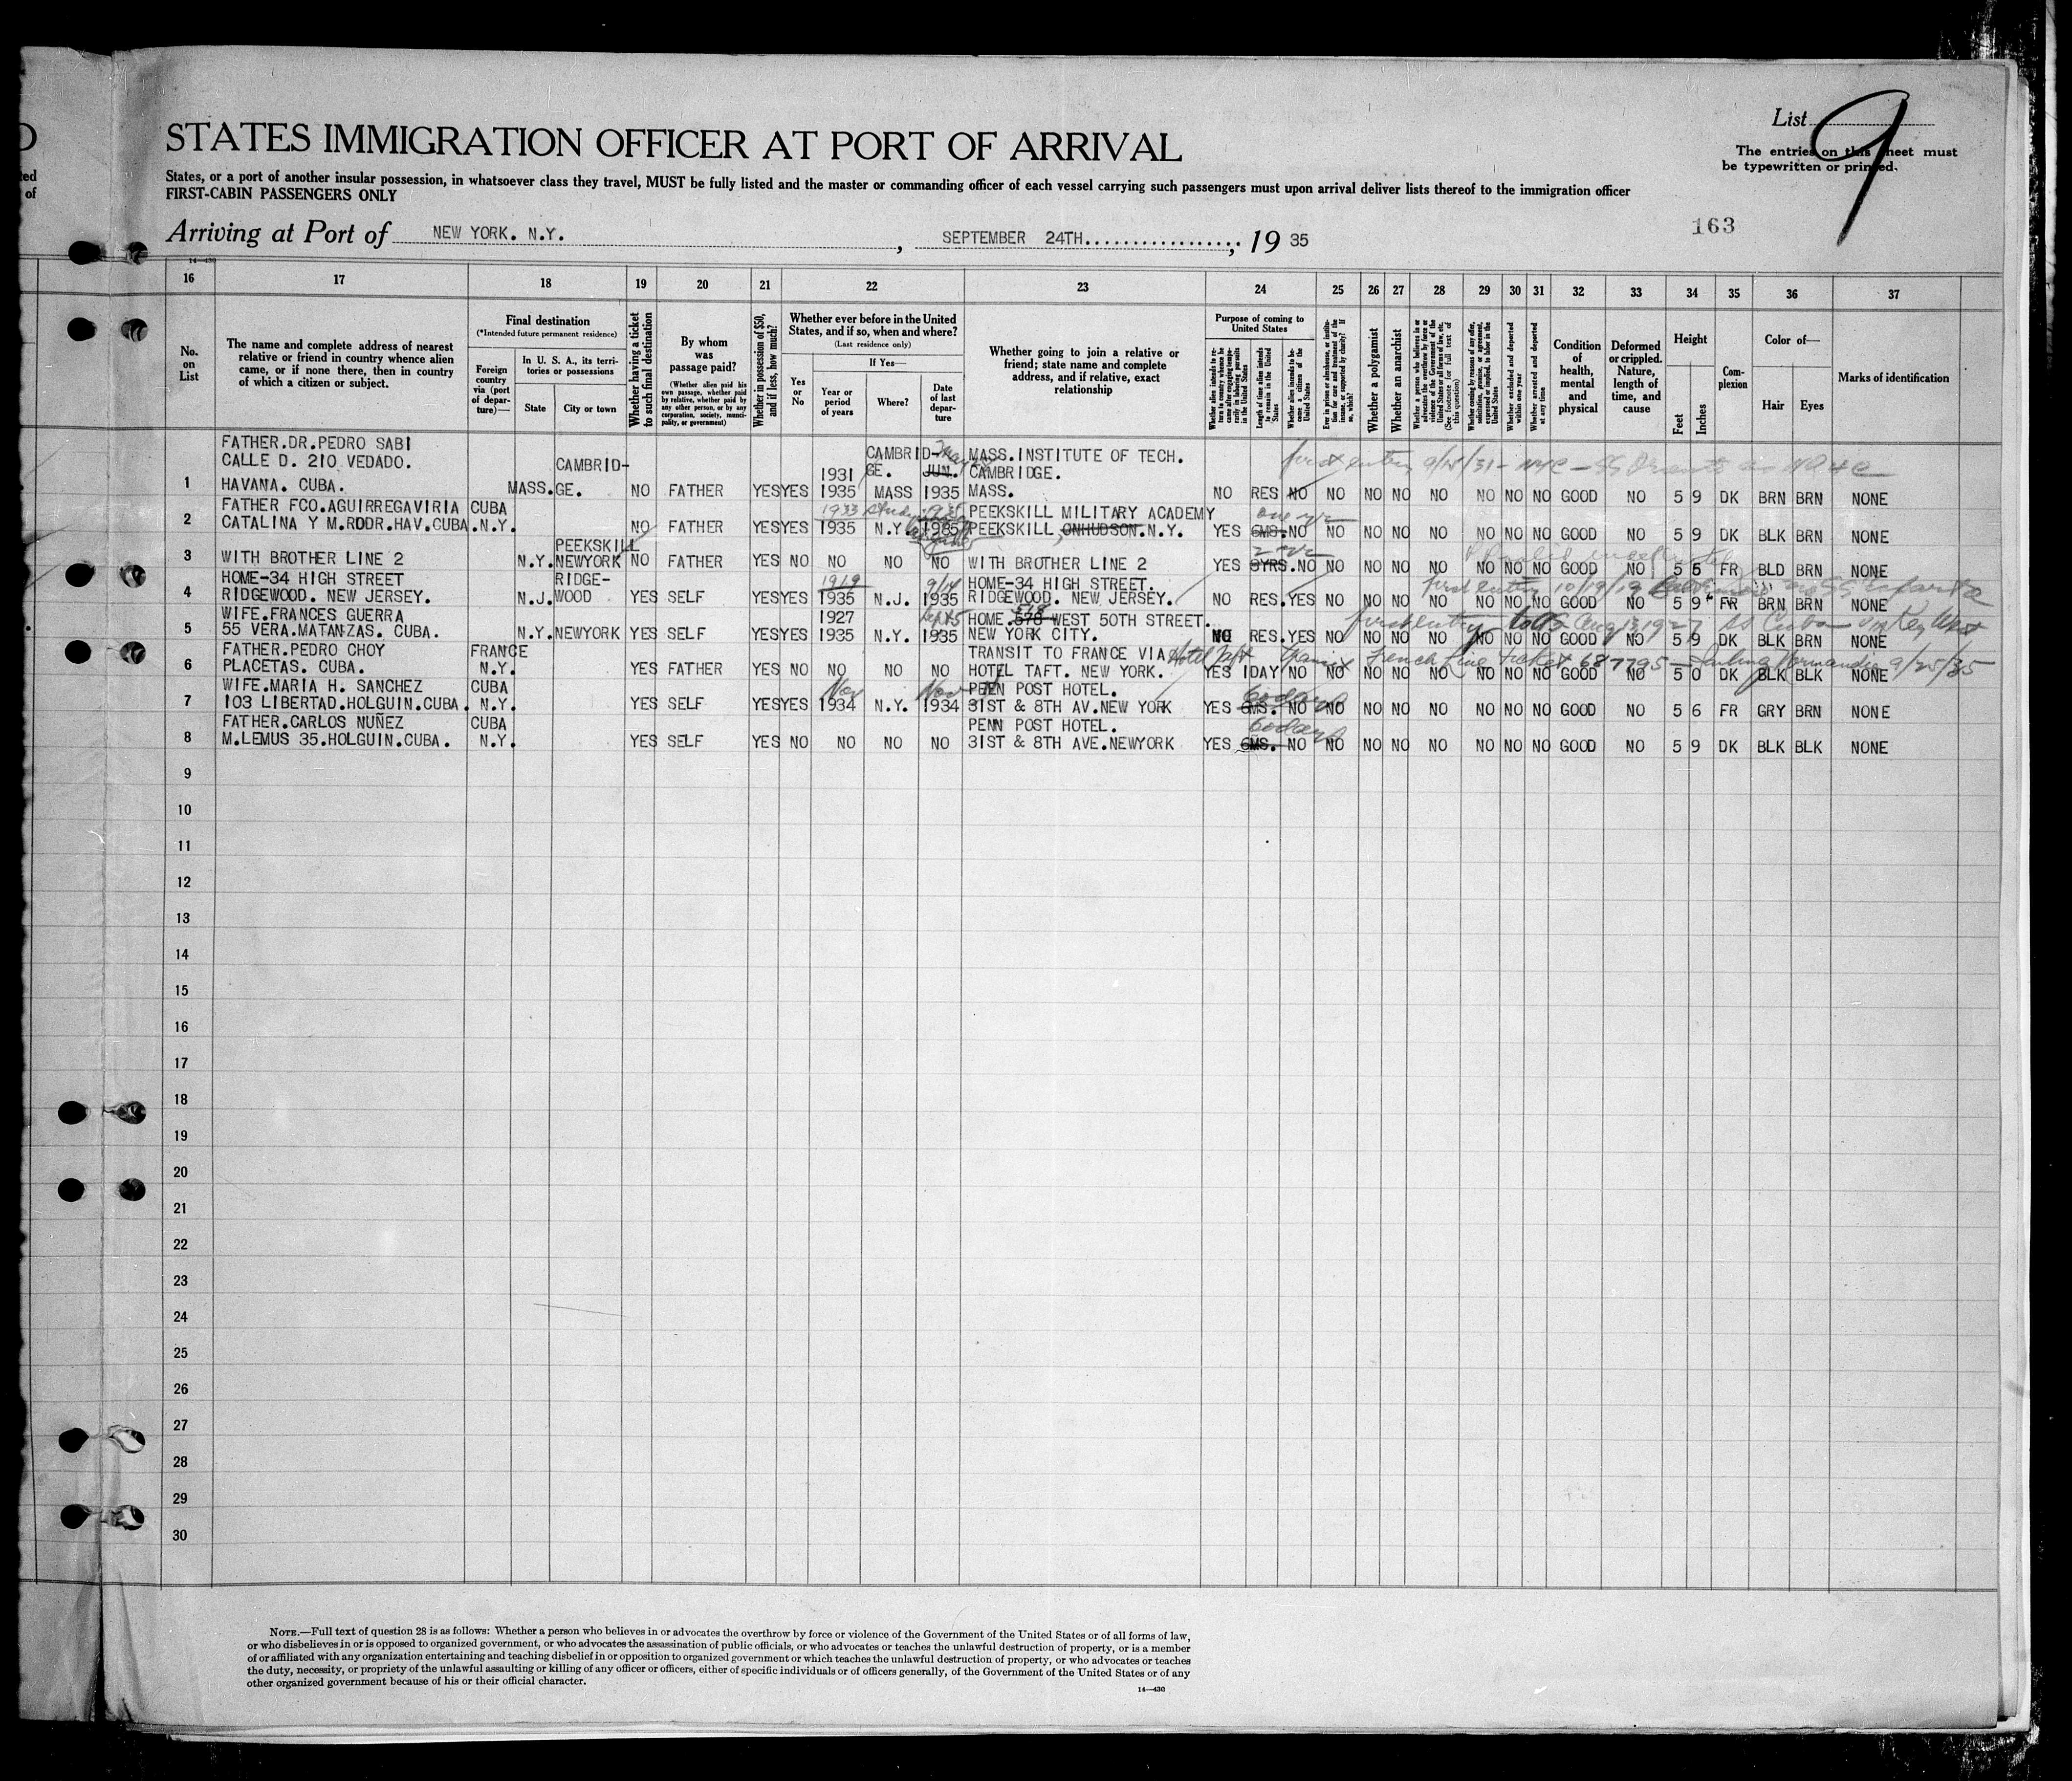 List 9
STATES IMMIGRATION OFFICER AT PORT OF ARRIVAL
The entries on this sheet must
be typewritten or printed.
States, or a port of another insular possession, in whatsoever class they travel, MUST be fully listed and the master or commanding officer of each vessel carrying such passengers must upon arrival deliver lists thereof to the immigration officer
FIRST-CABIN PASSENGERS ONLY
163
Arriving at Port of NEW YORK. N.Y. , SEPTEMBER 24TH................., 19 35
14—430
16 17 18 19 20 21 22 23 24 25 26 27 28 29 30 31 32 33 34 35 36 37
No. on List
The name and complete address of nearest relative or friend in country whence alien came, or if none there, then in country of which a citizen or subject.
Final destination
(*Intended future permanent residence)
Foreign country via (port of departure)—
In U. S. A., its territories or possessions
State
City or town
Whether having a ticket to such final destination
By whom was passage paid?
(Whether alien paid his own passage, whether paid by relative, whether paid by any other person, or by any corporation, society, municipality, or government)
Whether in possession of $50, and if less, how much?
Whether ever before in the United States, and if so, when and where?
(Last residence only)
Yes or No
If Yes—
Year or period of years
Where?
Date of last departure
Whether going to join a relative or friend; state name and complete address, and if relative, exact relationship
Purpose of coming to United States
Length of time alien intends to remain in the United States
Whether alien intends to become a citizen of the United States
Whether a polygamist
Whether an anarchist
Whether excluded and deported within one year
Whether arrested and deported at any time
Condition of health, mental and physical
Deformed or crippled. Nature, length of time, and cause
Height
Feet
Inches
Complexion
Color of—
Hair
Eyes
Marks of identification
FATHER.DR.PEDRO SABI
CALLE D. 210 VEDADO. CAMBRID- 1931 CAMBRID- MASS.INSTITUTE OF TECH.
GE. JUN. CAMBRIDGE.
1 HAVANA. CUBA. MASS. GE. NO FATHER YES YES 1935 MASS 1935 MASS. NO RES NO NO NO NO NO NO NO NO GOOD NO 5 9 DK BRN BRN NONE
FATHER FCO.AGUIRREGAVIRIA CUBA 1933 1935 PEEKSKILL MILITARY ACADEMY one yr
2 CATALINA Y M.RODR.HAV.CUBA. N.Y. NO FATHER YES YES 1935 N.Y. 1935 PEEKSKILL, ONHUDSON.N.Y. YES 6MS. NO NO NO NO NO NO NO NO GOOD NO 5 9 DK BLK BRN NONE
PEEKSKILL
3 WITH BROTHER LINE 2 N.Y. NEWYORK NO FATHER YES NO NO NO NO WITH BROTHER LINE 2 YES 3YRS. NO NO NO NO NO NO NO NO GOOD NO 5 5 FR BLD BRN NONE
HOME-34 HIGH STREET RIDGE- 1919 9/14 HOME-34 HIGH STREET. first entry 10/19/19
4 RIDGEWOOD. NEW JERSEY. N.J. WOOD YES SELF YES YES 1935 N.J. RIDGEWOOD. NEW JERSEY. NO RES. YES NO NO NO NO NO NO NO GOOD NO 5 9 FR BRN BRN NONE
WIFE.FRANCES GUERRA 1927 HOME.578 WEST 50TH STREET. first entry Aug 13 1927 SS Cuba Key West
5 55 VERA.MATANZAS. CUBA. N.Y. NEWYORK YES SELF YES YES 1935 N.Y. 1935 NEW YORK CITY. NO RES. YES NO NO NO NO NO NO NO GOOD NO 5 9 DK BLK BRN NONE
FATHER.PEDRO CHOY FRANCE TRANSIT TO FRANCE VIA Hotel Taft French Line ticket 687795 — Sailing Normandie 9/25/35
6 PLACETAS. CUBA. N.Y. YES FATHER YES NO NO NO NO HOTEL TAFT. NEW YORK. YES 1DAY NO NO NO NO NO NO NO NO GOOD NO 5 0 DK BLK BLK NONE
WIFE.MARIA H. SANCHEZ CUBA Nov Nov PEEN POST HOTEL. 60 days
7 103 LIBERTAD.HOLGUIN.CUBA. N.Y. YES SELF YES YES 1934 N.Y. 1934 31ST & 8TH AV.NEW YORK YES 6MS. NO NO NO NO NO NO NO NO GOOD NO 5 6 FR GRY BRN NONE
FATHER.CARLOS NUÑEZ CUBA PENN POST HOTEL. 60 days
8 M.LEMUS 35.HOLGUIN.CUBA. N.Y. YES SELF YES NO NO NO NO 31ST & 8TH AVE.NEWYORK YES 6MS. NO NO NO NO NO NO NO NO GOOD NO 5 9 DK BLK BLK NONE
9
10
11
12
13
14
15
16
17
18
19
20
21
22
23
24
25
26
27
28
29
30
NOTE.—Full text of question 28 is as follows: Whether a person who believes in or advocates the overthrow by force or violence of the Government of the United States or of all forms of law,
or who disbelieves in or is opposed to organized government, or who advocates the assassination of public officials, or who advocates or teaches the unlawful destruction of property, or is a member
of or affiliated with any organization entertaining and teaching disbelief in or opposition to organized government or which teaches the unlawful destruction of property, or who advocates or teaches
the duty, necessity, or propriety of the unlawful assaulting or killing of any officer or officers, either of specific individuals or of officers generally, of the Government of the United States or of any
other organized government because of his or their official character.
14—430